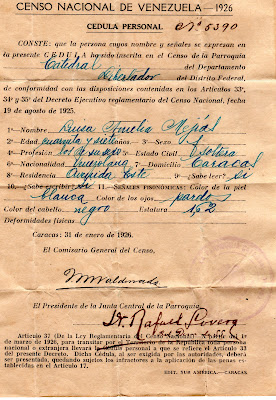 CENSO NACIONAL DE VENEZUELA—1926
CEDULA PERSONAL Nº 5390
CONSTE: que la persona cuyo nombre y señales se expresan en
la presente CEDULA ha sido inscrita en el Censo de la Parroquia
Catedral del Departamento
Libertador del Distrito Federal,
de conformidad con las disposiciones contenidas en los Artículos 33º,
34º y 35º del Decreto Ejecutivo reglamentario del Censo Nacional, fecha
19 de agosto de 1925.
1º—Nombre Luisa Mejías
2º—Edad cuarenta y siete años 3º—Sexo F
4º—Profesión 5º—Estado Civil Soltera
6º—Nacionalidad Venezolana 7º—Domicilio Caracas
8º—Residencia Este 9º—¿Sabe leer? si
10.—¿Sabe escribir? si 11.—SEÑALES FISONÓMICAS: Color de la piel
blanca Color de los ojos pardos
Color del cabello negro Estatura 1,52
Deformidades físicas
Caracas: 31 de enero de 1926.
El Comisario General del Censo,
El Presidente de la Junta Central de la Parroquia,
Dr. Rafael Lovera
Artículo 37 (De la Ley Reglamentaria del Censo Nacional). A partir del 1º de
marzo de 1926, para transitar por el Territorio de la República toda persona
nacional o extranjera llevará la Cédula personal a que se refiere el Artículo 33
del presente Decreto. Dicha Cédula, al ser exigida por las autoridades, deberá
ser presentada, quedando sujetos los infractores a la aplicación de las penas es-
tablecidas en el Artículo 17.
EDIT. SUR AMÉRICA—CARACAS